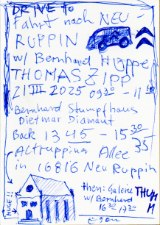 DRIVE TO
Fahrt nach NEU-
RUPPIN
w/ Bernhard Höppe
THOMAS ZIPP
21 VII 2025 0930 - 11
Bernhard Stumpfhaus
Dietmar Diamant
Back 13 45 - 15 30
Altruppiner Allee
in 16816 Neu Ruppin
then: Galerie THUMM
w/ Bernhard
NICE!!